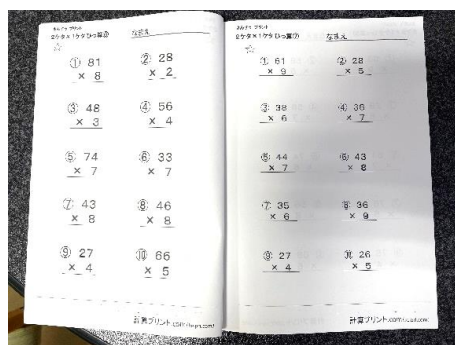 2ケタ×1ケタ ひっ算⑳
なまえ
① 81
× 8
② 28
× 2
③ 48
× 3
④ 56
× 4
⑤ 74
× 7
⑥ 33
× 7
⑦ 43
× 8
⑧ 46
× 8
⑨ 27
× 4
⑩ 66
× 5
計算プリント.com
2ケタ×1ケタ ひっ算
なまえ
① 61
× 9
② 28
× 5
③ 38
× 6
④ 36
× 7
⑤ 44
× 7
⑥ 43
× 8
⑦ 35
× 6
⑧ 36
× 9
⑨ 27
× 4
⑩ 26
× 5
計算プリント.com